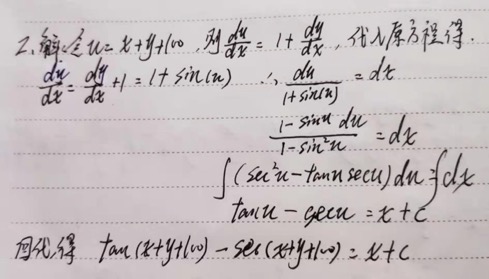 2、解:令u=x+y+100, 则du/dx=1+dy/dx, 代入原方程得.
du/dx=dy/dx+1=1+sin(u) ∴ du/(1+sin(u))=dx
(1-sinu du)/(1-sin²u)=dx
∫(sec²u-tanusecu)du=∫dx
tanu-secu=x+c
回代得 tan(x+y+100)-sec(x+y+100)=x+c